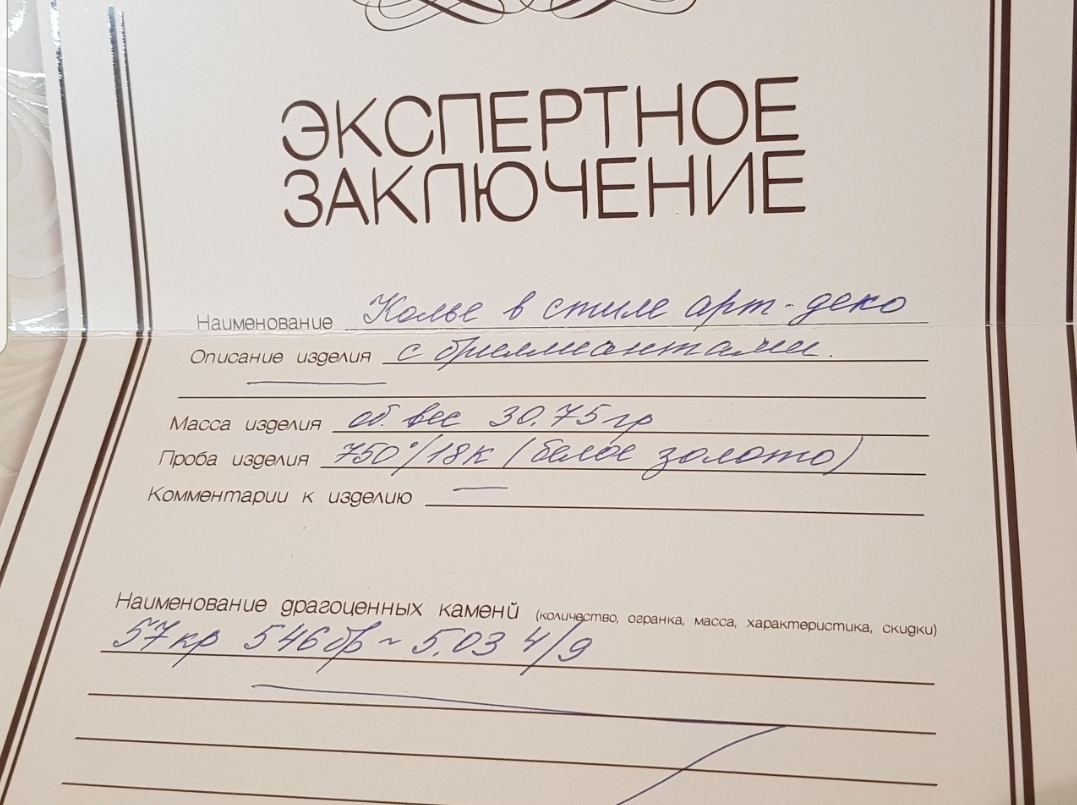 ЭКСПЕРТНОЕ
ЗАКЛЮЧЕНИЕ
Наименование Колье в стиле арт-деко
Описание изделия с бриллиантами.
Масса изделия об. вес 30.75гр
Проба изделия 750°/18к (белое золото)
Комментарии к изделию —
Наименование драгоценных каменй (количество, огранка, масса, характеристика, скидки)
57кр 546бр ~ 5.03 4/9